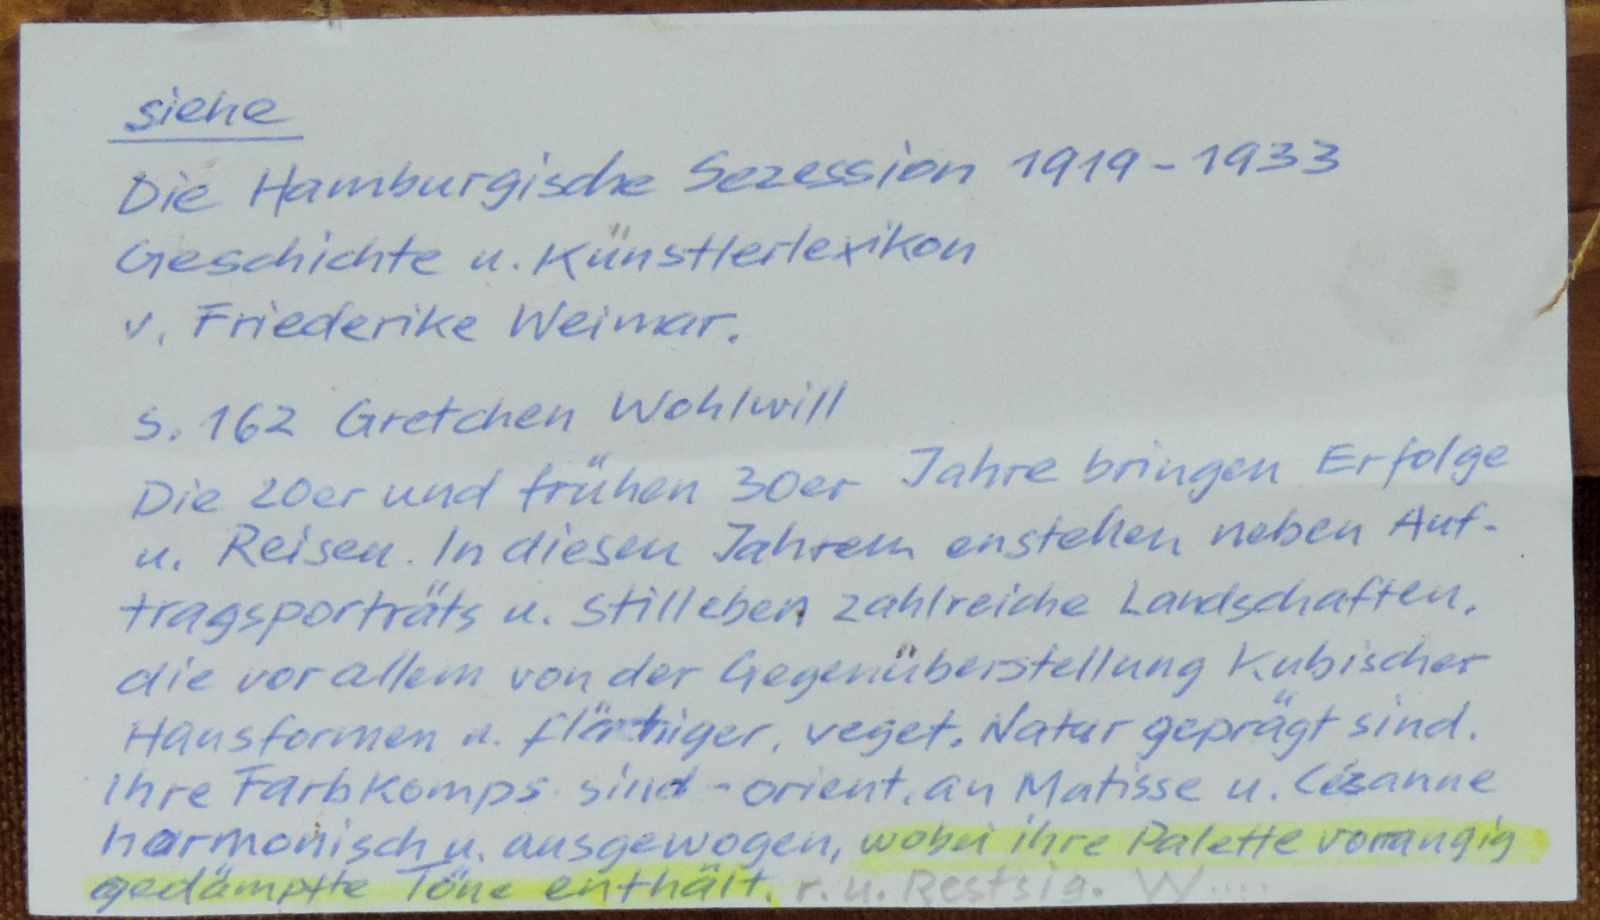 siehe
Die Hamburgische Sezession 1919-1933
Geschichte u. Künstlerlexikon
v. Friederike Weimar.
S. 162 Gretchen Wohlwill
Die 20er und frühen 30er Jahre bringen Erfolge
u. Reisen. In diesen Jahren enstehen neben Auf-
tragsporträts u. Stilleben zahlreiche Landschaften,
die vor allem von der Gegenüberstellung Kubischer
Hausformen u. flächiger, veget. Natur geprägt sind.
Ihre Farbkomps. sind - orient. an Matisse u. Cézanne
harmonisch u. ausgewogen, wobei ihre Palette vorrangig
gedämpfte Töne enthält. r. u. Restsig. W....